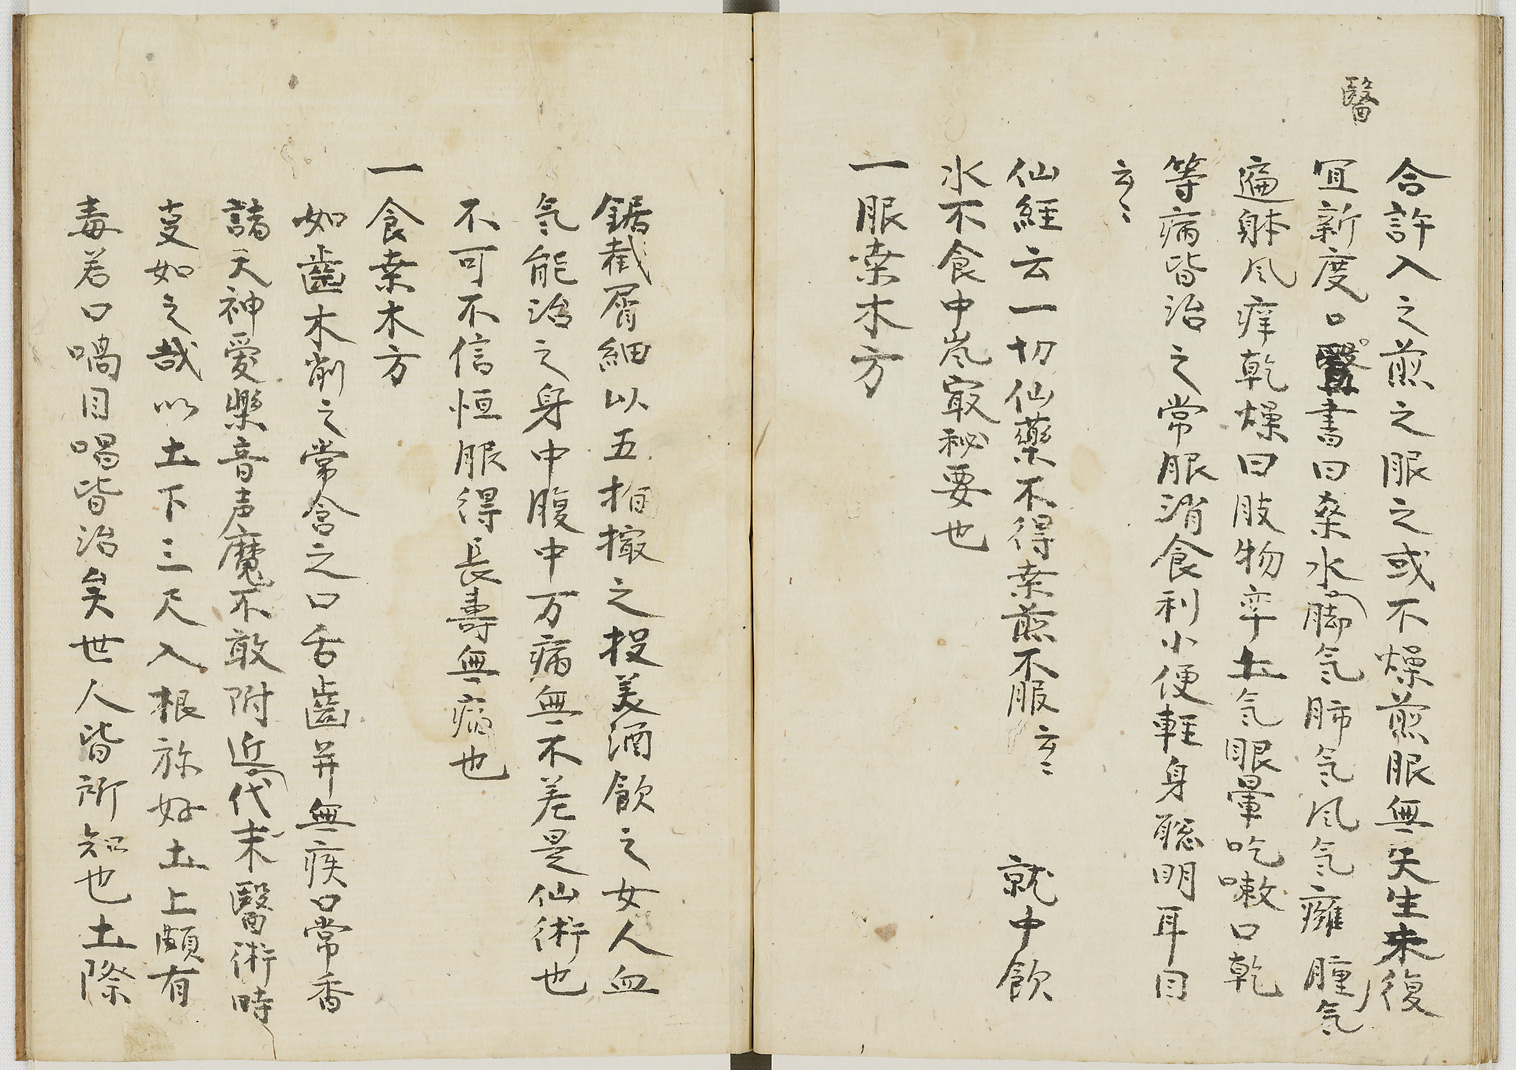 醫
合許入之煎之服之或不燥煎服無失生未復
宜新度口醫書曰桒水脚气肺气风气癰腫气
遍躰风痒乾燥曰肢物率土气眼暈吃嗽口乾
等病皆治之常服消食利小便軽身聡明耳目
云々
仙経云一切仙藥不得桒煎不服云々 就中飲
水不食中岚㝡秘要也
一服桒木方
鋸截屑細以五指撮之投美酒飲之女人血
气能治之身中腹中万病無不差是仙術也
不可不信恒服得長壽無病也
一食桒木方
如齒木削之常含之口舌齒并無疾口常香
諸天神愛樂音声魔不敢附近代末醫術時
㕝如之哉以土下三尺入根弥好土上頗有
毒若口喎目喎皆治矣世人皆所知也土際